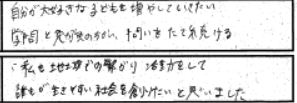 自分が大好きな子どもを増やしていきたい
学問と実が共のちがい、問いをたて続ける
私も地域での繋がり 活動をして
誰もが生きやすい社会を創りたいと思いました